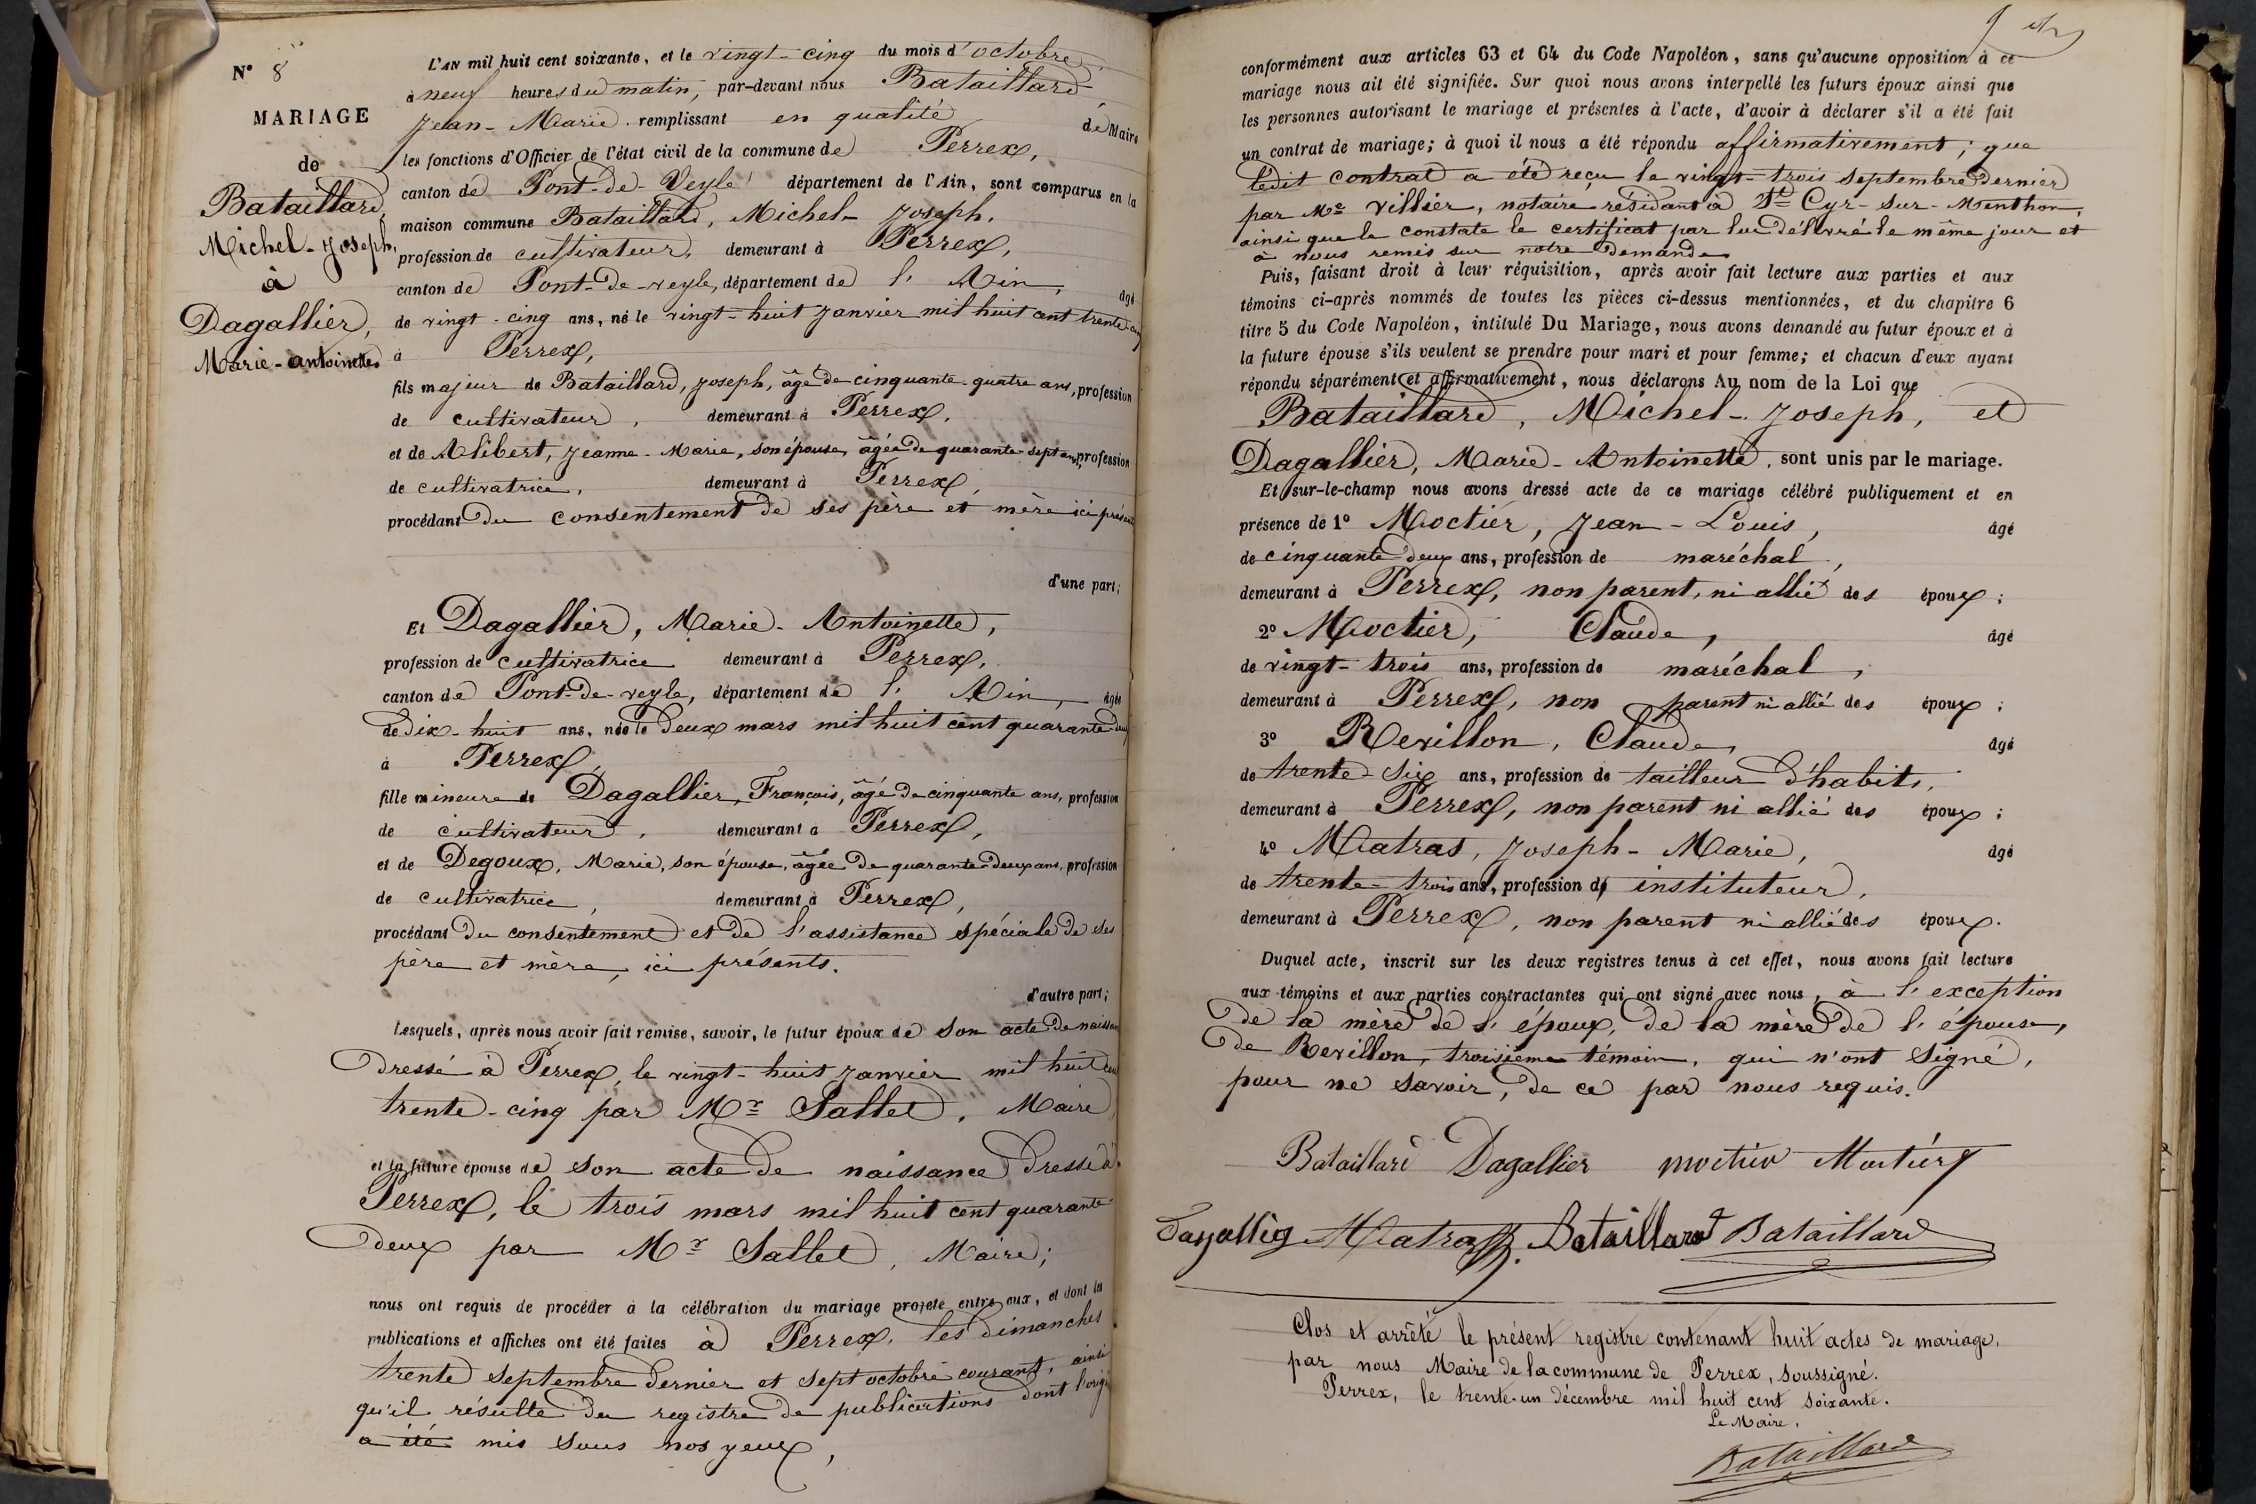 N° 8
MARIAGE
de
Bataillard,
Michel-Joseph,
à
Dagallier,
Marie-Antoinette
L'AN mil huit cent soixante, et le vingt-cinq du mois d'octobre,
à neuf heures du matin, par-devant nous Bataillard
Jean-Marie remplissant en qualité de Maire
les fonctions d'Officier de l'état civil de la commune de Perrex,
canton de Pont-de-Veyle département de l'Ain, sont comparus en la
maison commune Bataillard, Michel-Joseph,
profession de cultivateur, demeurant à Perrex,
canton de Pont-de-veyle, département de l'Ain, âgé
de vingt-cinq ans, né le vingt-huit janvier mil huit cent trente cinq
à Perrex,
fils majeur de Bataillard, Joseph, âgé de cinquante-quatre ans, profession
de cultivateur, demeurant à Perrex,
et de Alibert, Jeanne-Marie, son épouse, âgée de quarante-sept ans, profession
de cultivatrice, demeurant à Perrex,
procédant du consentement de ses père et mère ici présents
d'une part;
Et Dagallier, Marie-Antoinette,
profession de cultivatrice demeurant à Perrex,
canton de Pont-de-veyle, département de l'Ain, âgée
de dix-huit ans, née le deux mars mil huit cent quarante-deux
à Perrex,
fille mineure de Dagallier, François, âgé de cinquante ans, profession
de cultivateur, demeurant à Perrex,
et de Degoux, Marie, son épouse, âgée de quarante-deux ans, profession
de cultivatrice, demeurant à Perrex,
procédant du consentement et de l'assistance spéciale de ses
père et mère, ici présents.
d'autre part;
Lesquels, après nous avoir fait remise, savoir, le futur époux de son acte de naissance
dressé à Perrex, le vingt-huit janvier mil huit cent
trente-cinq par Mr Sallet, Maire
et la future épouse de son acte de naissance dressé à
Perrex, le trois mars mil huit cent quarante
deux par Mr Sallet, Maire;
nous ont requis de procéder à la célébration du mariage projeté entre eux, et dont les
publications et affiches ont été faites à Perrex, les dimanches
trente septembre dernier et sept octobre courant, ainsi
qu'il résulte du registre de publications dont l'orig
a été mis sous nos yeux,
conformément aux articles 63 et 64 du Code Napoléon, sans qu'aucune opposition à ce
mariage nous ait été signifiée. Sur quoi nous avons interpellé les futurs époux ainsi que
les personnes autorisant le mariage et présentes à l'acte, d'avoir à déclarer s'il a été fait
un contrat de mariage; à quoi il nous a été répondu affirmativement; que
ledit contrat a été reçu le vingt-trois septembre dernier
par Me Villier, notaire résidant à St Cyr-sur-Menthon,
ainsi que le constate le certificat par lui délivré le même jour et
à nous remis sur notre demande
Puis, faisant droit à leur réquisition, après avoir fait lecture aux parties et aux
témoins ci-après nommés de toutes les pièces ci-dessus mentionnées, et du chapitre 6
titre 5 du Code Napoléon, intitulé Du Mariage, nous avons demandé au futur époux et à
la future épouse s'ils veulent se prendre pour mari et pour femme; et chacun d'eux ayant
répondu séparément et affirmativement, nous déclarons Au nom de la Loi que
Bataillard, Michel-Joseph, et
Dagallier, Marie-Antoinette, sont unis par le mariage.
Et sur-le-champ nous avons dressé acte de ce mariage célébré publiquement et en
présence de 1° Moctier, Jean-Louis, âgé
de cinquante deux ans, profession de maréchal,
demeurant à Perrex, non parent, ni allié des époux;
2° Moctier, Claude, âgé
de vingt-trois ans, profession de maréchal,
demeurant à Perrex, non parent ni allié des époux;
3° Revillon, Claude, âgé
de trente-six ans, profession de tailleur d'habits,
demeurant à Perrex, non parent ni allié des époux;
4° Matras, Joseph-Marie, âgé
de trente-trois ans, profession d' instituteur,
demeurant à Perrex, non parent ni allié des époux.
Duquel acte, inscrit sur les deux registres tenus à cet effet, nous avons fait lecture
aux témoins et aux parties contractantes qui ont signé avec nous, à l'exception
de la mère de l'époux, de la mère de l'épouse,
de Revillon, troisième témoin, qui n'ont signé,
pour ne savoir, de ce par nous requis.
Bataillard Dagallier moctier Moctier
Dagallier Matras Bataillard Bataillard
Clos et arrêté le présent registre contenant huit actes de mariage,
par nous Maire de la commune de Perrex, soussigné.
Perrex, le trente-un décembre mil huit cent soixante.
Le Maire,
Bataillard